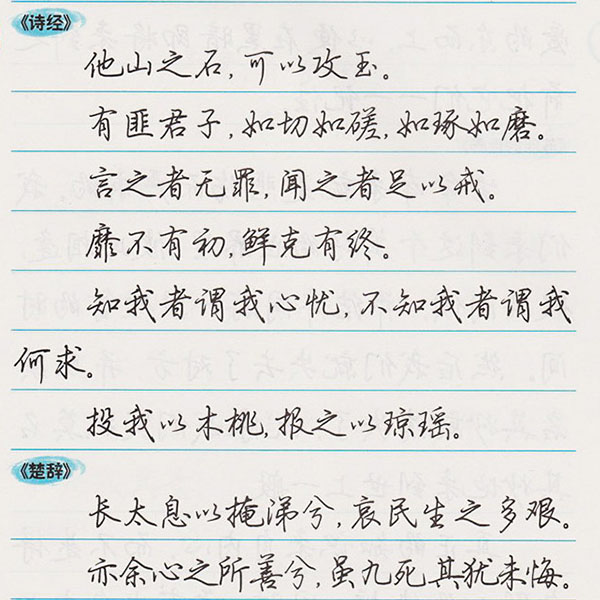 《诗经》
他山之石,可以攻玉。
有匪君子,如切如磋,如琢如磨。
言之者无罪,闻之者足以戒。
靡不有初,鲜克有终。
知我者谓我心忧,不知我者谓我
何求。
投我以木桃,报之以琼瑶。
《楚辞》
长太息以掩涕兮,哀民生之多艰。
亦余心之所善兮,虽九死其犹未悔。